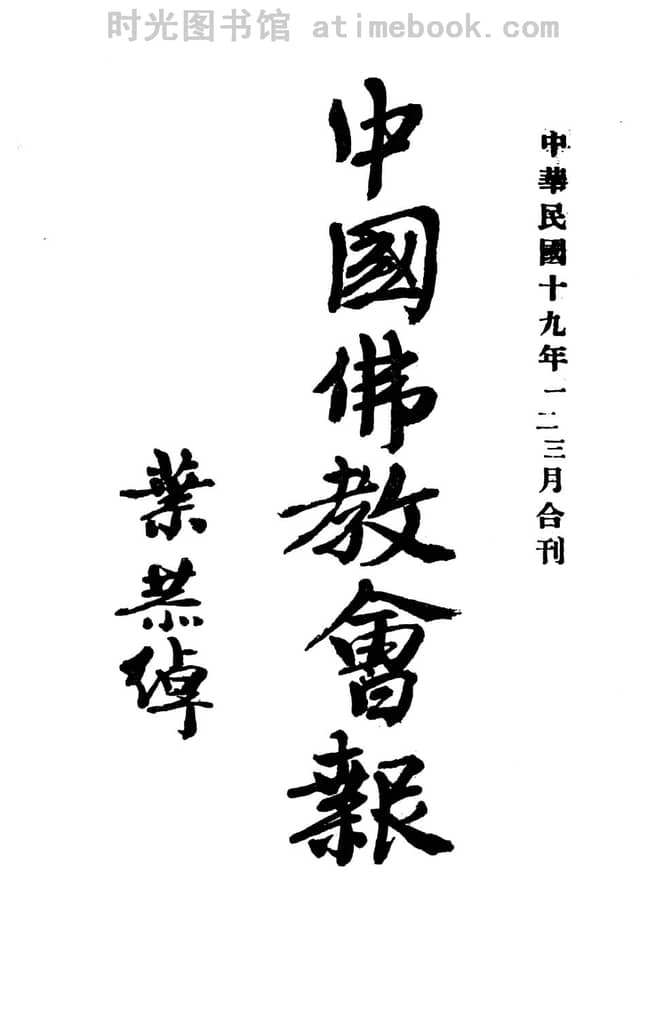 时光图书馆 atimebook.com
中華民國十九年一二三月合刊
中國佛教會報
葉恭綽